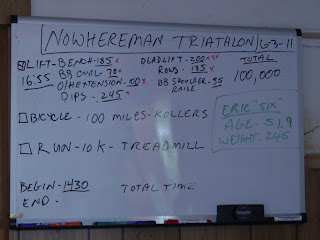 NOWHEREMAN TRIATHLON/6-3-11
LIFT-BENCH-185 DEADLIFT-200 TOTAL
16:55 BB CURL-70 ROWS-185 100,000
O/H EXTENSION-100 DB SHOULDER-35
DIPS-245 RAISE
BICYCLE-100 MILES-ROLLERS
ERIC "SIX"
AGE-51.9
WEIGHT-245
RUN-10K-TREADMILL
BEGIN-1430 TOTAL TIME
END-